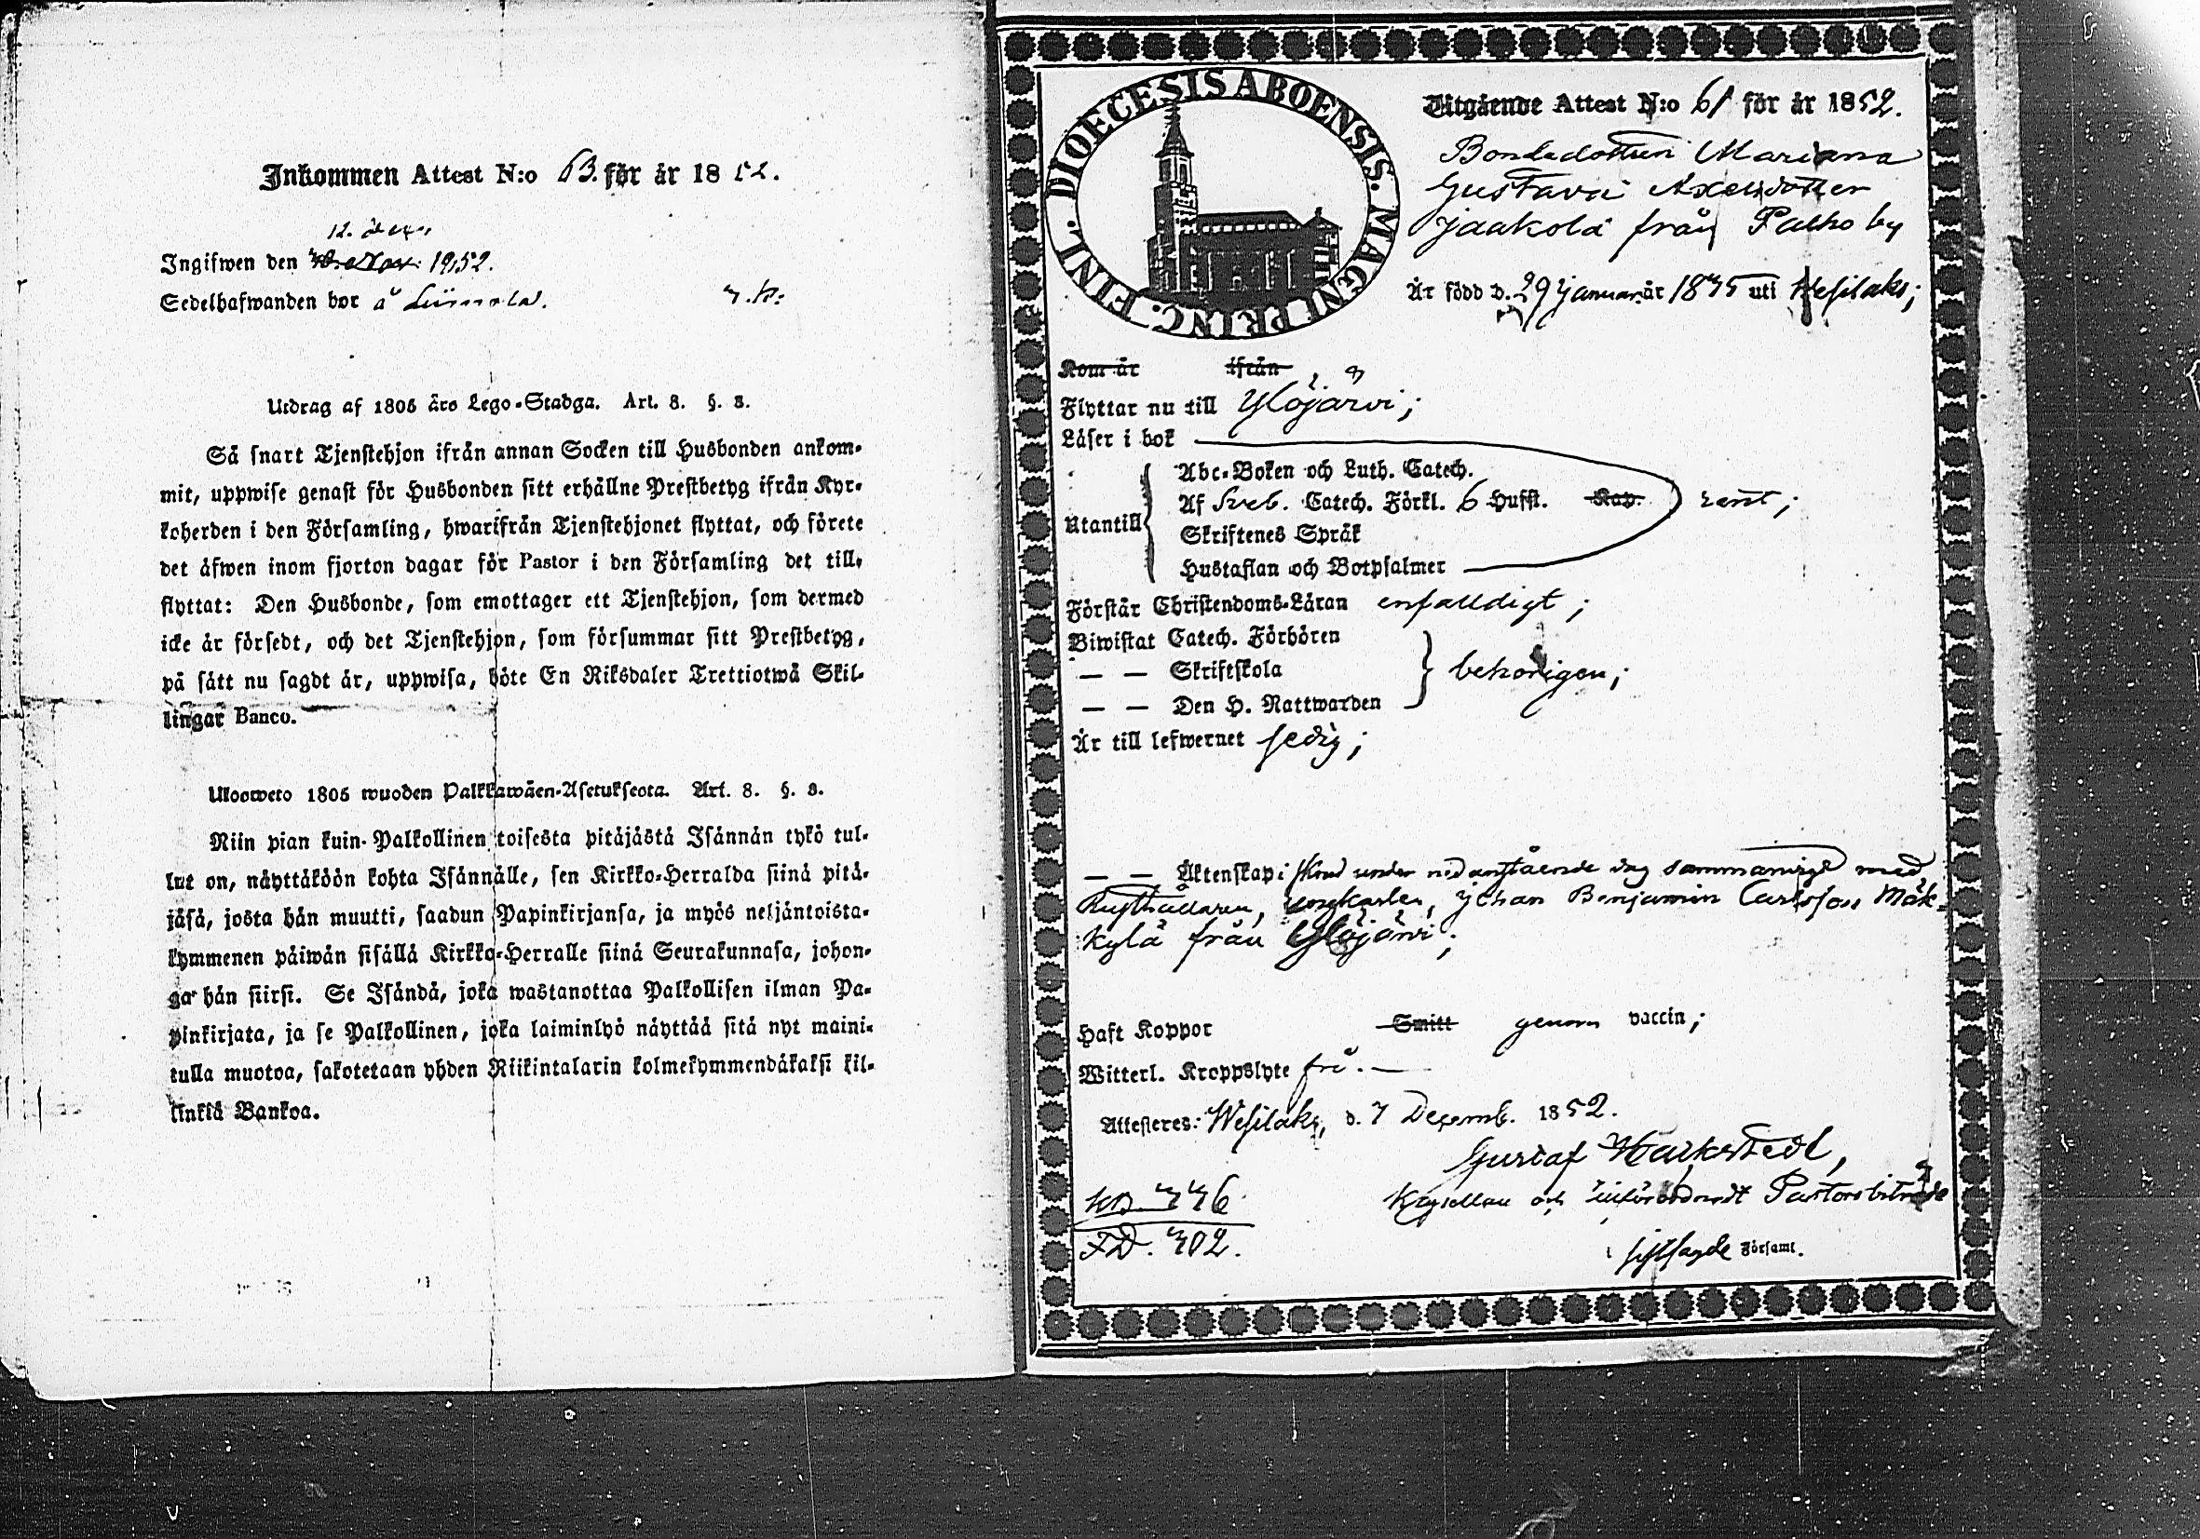 Inkommen Attest N:o 63. för år 1852.
12. dec.
Ingifwen den 1852.
Sedelhafwanden bor å
Utdrag af 1805 års Lego-Stadga. Art. 8. §. 3.
Så snart Tjenstehjon ifrån annan Socken till Husbonden ankom-
mit, uppwise genast för Husbonden sitt erhållne Prestbetyg ifrån Kyr-
koherden i den Församling, hwarifrån Tjenstehjonet flyttat, och förete
det äfwen inom fjorton dagar för Pastor i den Församling det till-
flyttat: Den Husbonde, som emottager ett Tjenstehjon, som dermed
icke är försedt, och det Tjenstehjon, som försummar sitt Prestbetyg,
på sätt nu sagdt är, uppwisa, böte En Riksdaler Trettiotwå Skil-
lingar Banco.
Uloosweto 1805 wuoden Palkkawäen-Asetuksesta. Art. 8. §. 3.
Niin pian kuin Palkollinen toisesta pitäjästä Isännän tykö tul-
lut on, näyttäköön kohta Isännälle, sen Kirkko-Herralda siinä pitä-
jäsä, josta hän muutti, saadun Papinkirjansa, ja myös neljäntoista-
kymmenen päiwän sisällä Kirkko-Herralle siinä Seurakunnasa, johon-
ga hän siirsi. Se Isändä, joka wastanottaa Palkollisen ilman Pa-
pinkirjata, ja se Palkollinen, joka laiminlyö näyttää sitä nyt maini-
tulla muotoa, sakotetaan yhden Riikintalarin kolmekymmendäkaksi kil-
linkiä Bankoa.
DIOECESIS ABOENSIS. MAGNI PRINC. FINL.
Utgående Attest N:o 61 för år 1852.
Bondedottren Mariana
Gustava Axelsdotter
Jaakola från Palho by
Är född d. 29 Januar. år 1835 uti Wesilaks;
Kom år ifrån
Flyttar nu till Ylöjärvi;
Läser i bok
Abc-Boken och Luth. Catech.
Af Sveb. Catech. Förkl. 6 Hufst. Kap. rent;
Utantill
Skriftenes Språk
Hustaflan och Botpsalmer
Förstår Christendoms-Läran enfalldigt;
Biwistat Catech. Förhören
— — Skriftskola behörigen;
— — Den H. Nattwarden
Är till lefwernet sedig;
— — Äktenskap i stånd under nedanstående dag sammanvigd med
Rusthållaren, ungkarlen, Johan Benjamin Carlsson Mäk-
kylä från Ylöjärvi;
Haft Koppor Smitt genom vaccin;
Witterl. Kroppslyte fri. —
Attesteres: Wesilaks, d. 7 Decemb. 1852.
Gustaf
Kapellan och införordnadt Pastorsbiträde
i sistsagde Församl.
KB. 336
FD. 302.